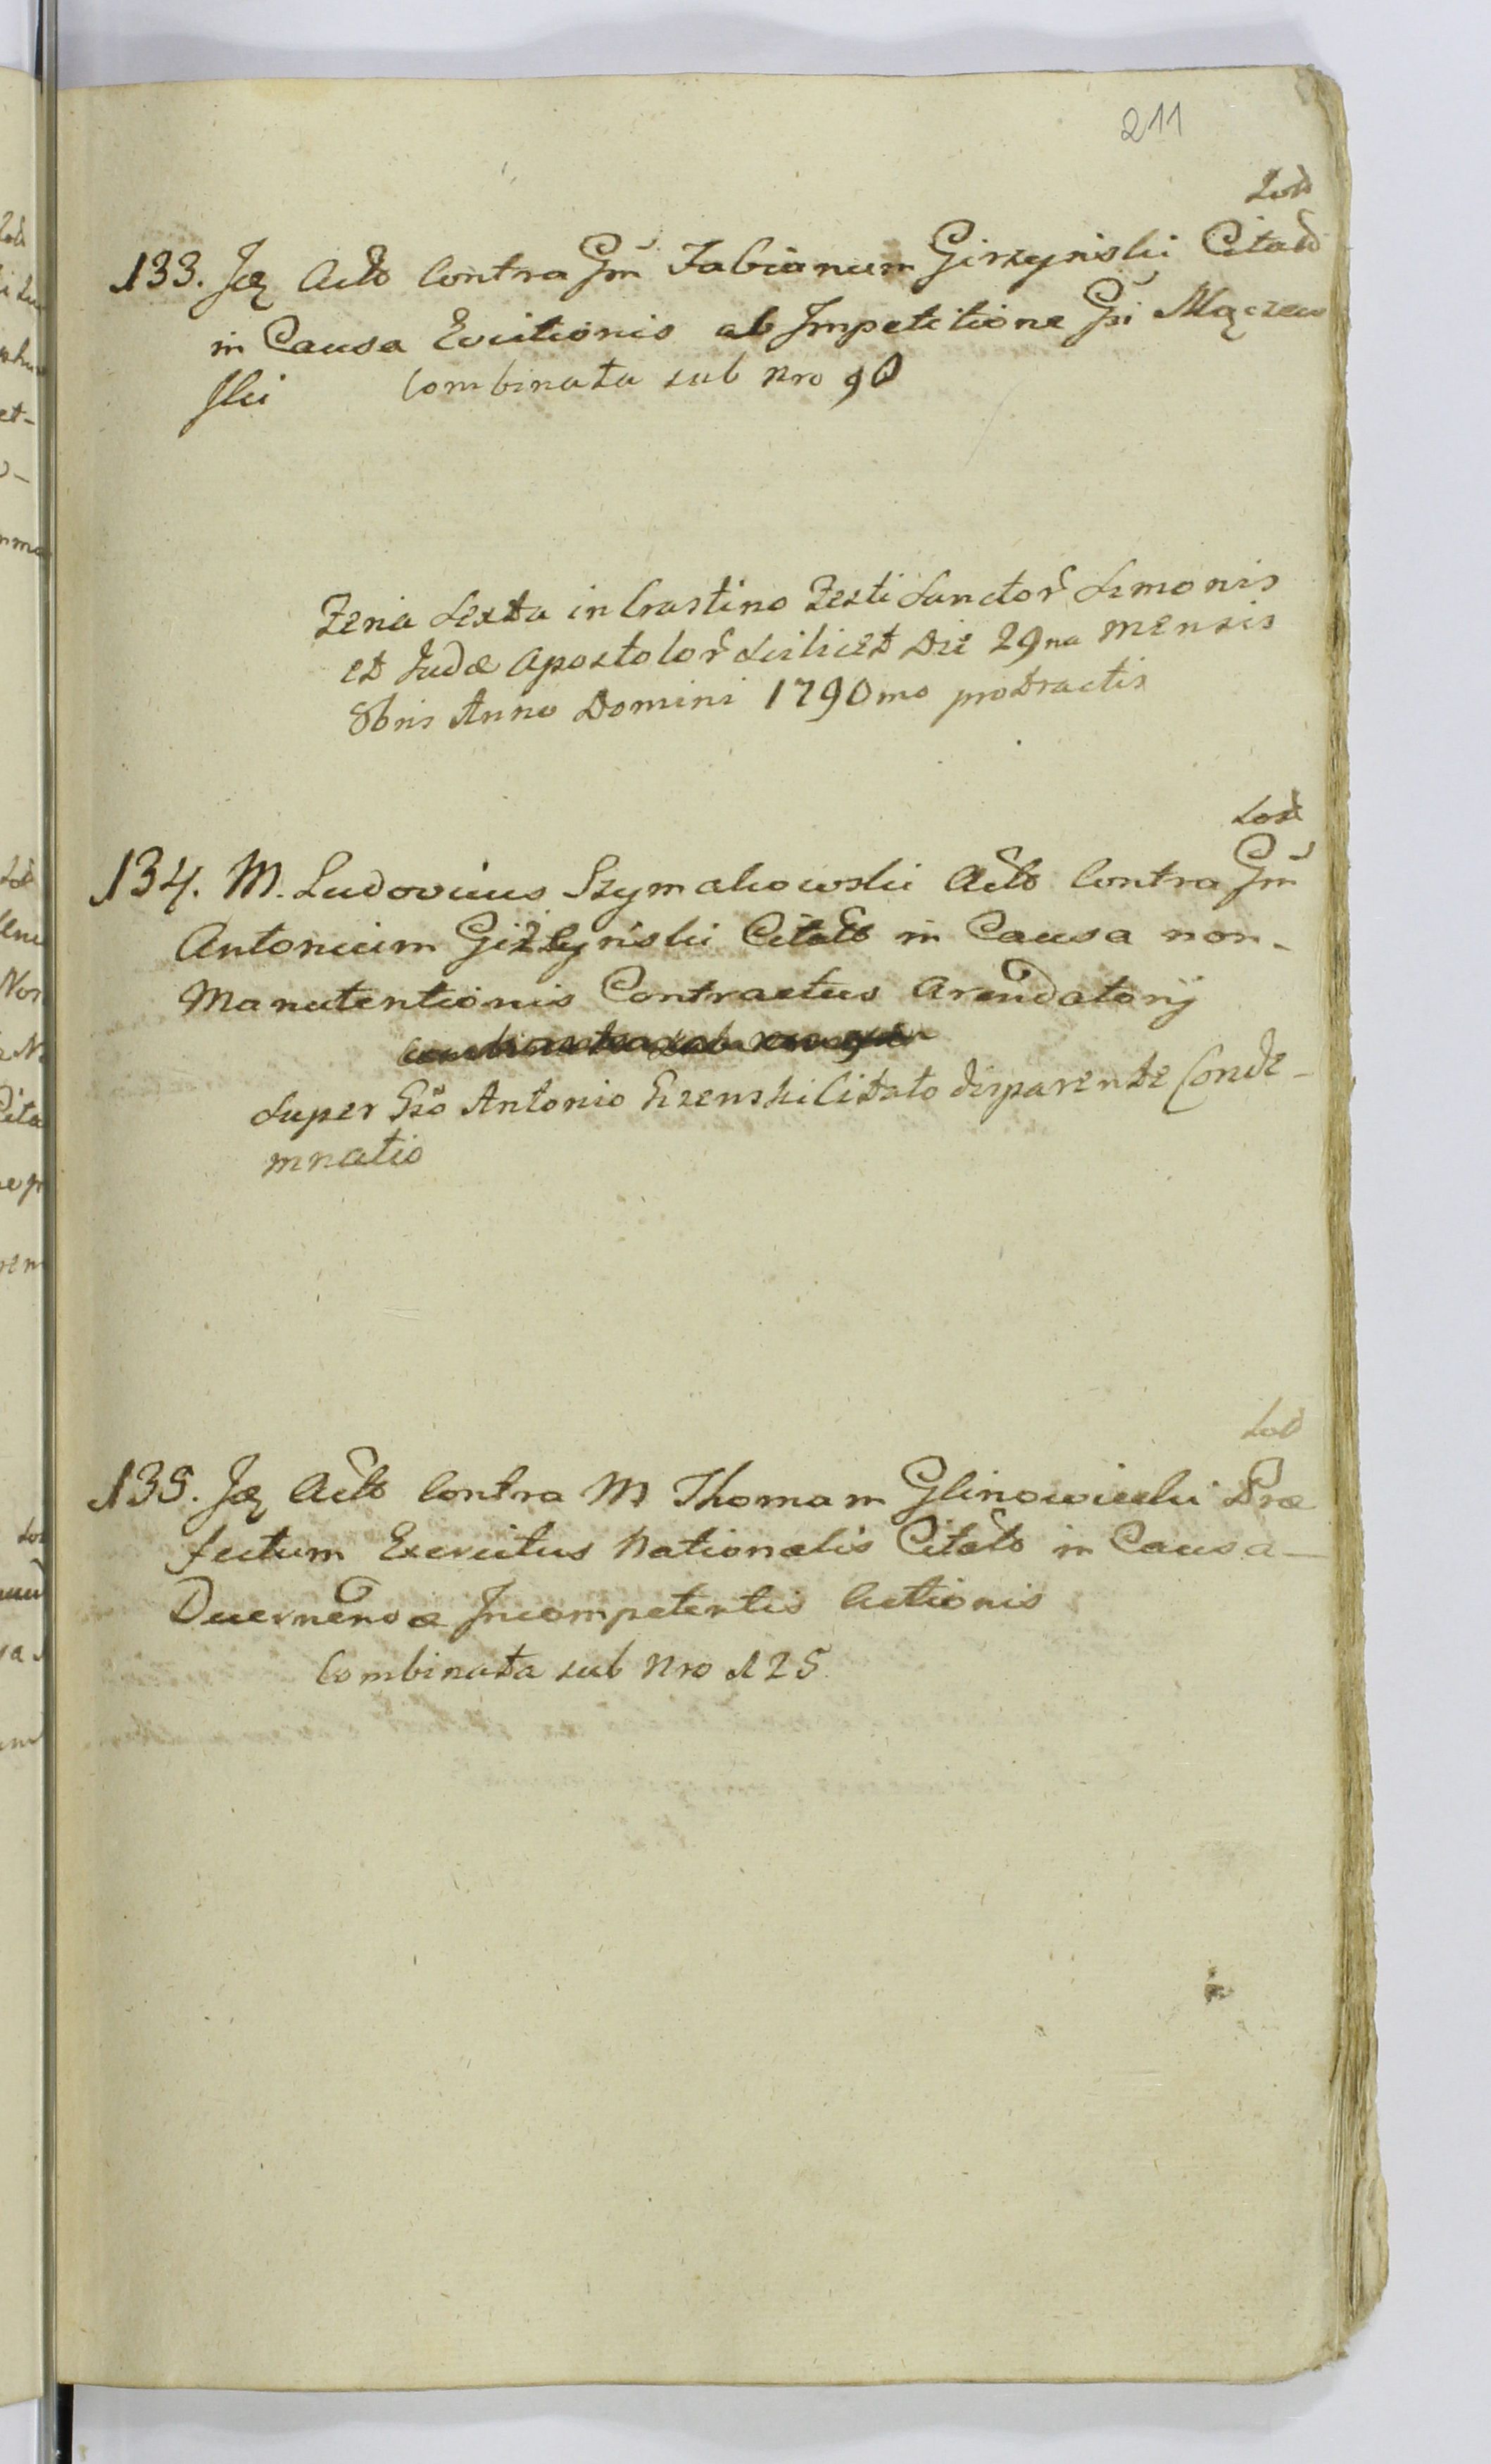 211
Sod
133. Jdę Acto Contra Gm Fabianum Girzyński Citato
in Causa Evictionis ab Impetitione Gsi Mączew
ski Combinata sub Nro 90
Feria Sexta in Crastino Festi Sanctor Simonis
et Judæ Apostolor Scilicet Die 29na Mensis
8bris Anno Domini 1790mo protractis
Sod
134. M. Ludovicus Szymakowski Acto Contra Gm
Antonium Giżyński Citato in Causa non-
Manutentionis Contractus Arendatorij
Super Gso Antonio Citato disparente Conde-
mnatio
Sod
135. Jdę Acto Contra M Thomam Glinowiecki Præ
fectum Exercitus Nationalis Citato in Causa-
Ducernendæ Incompetentis Actionis
Combinata sub Nro 125